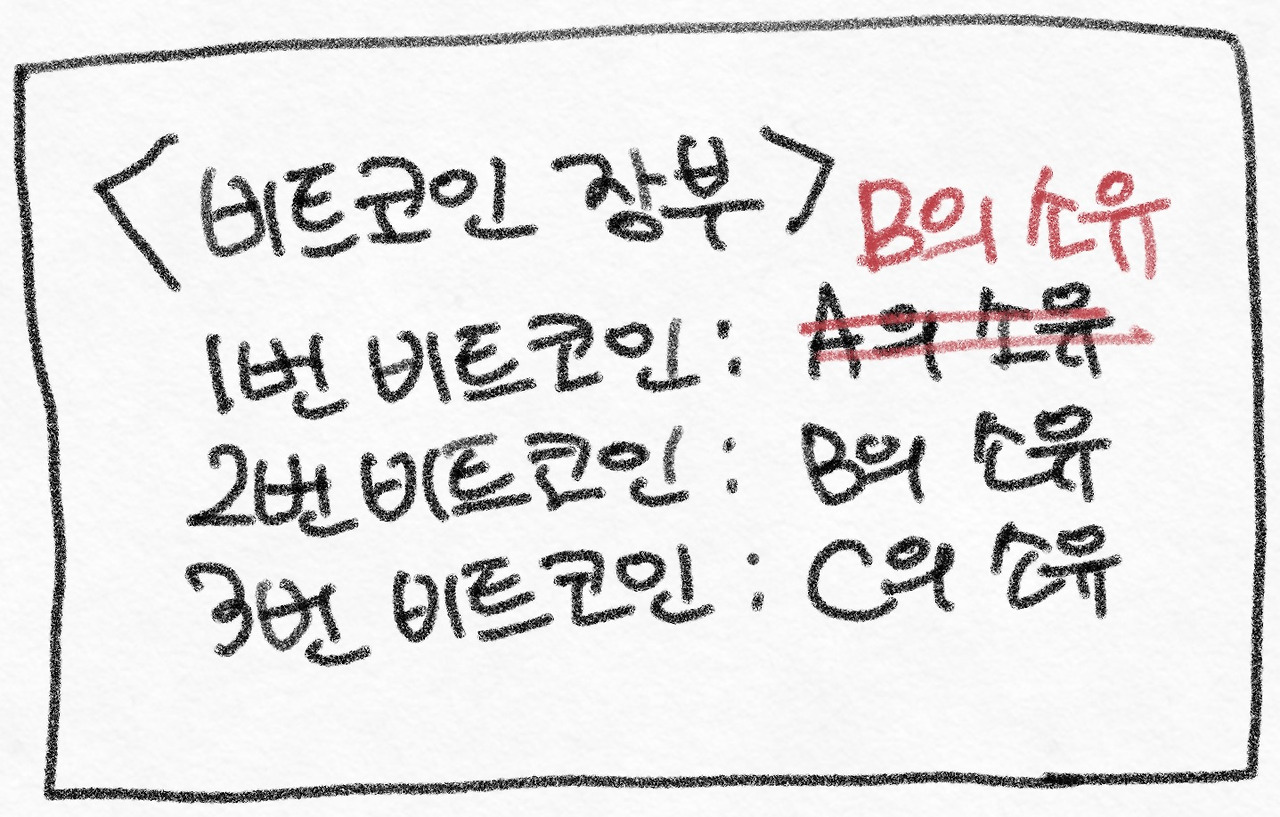 <비트코인 장부>
B의 소유
1번 비트코인 : A의 소유
2번 비트코인 : B의 소유
3번 비트코인 : C의 소유